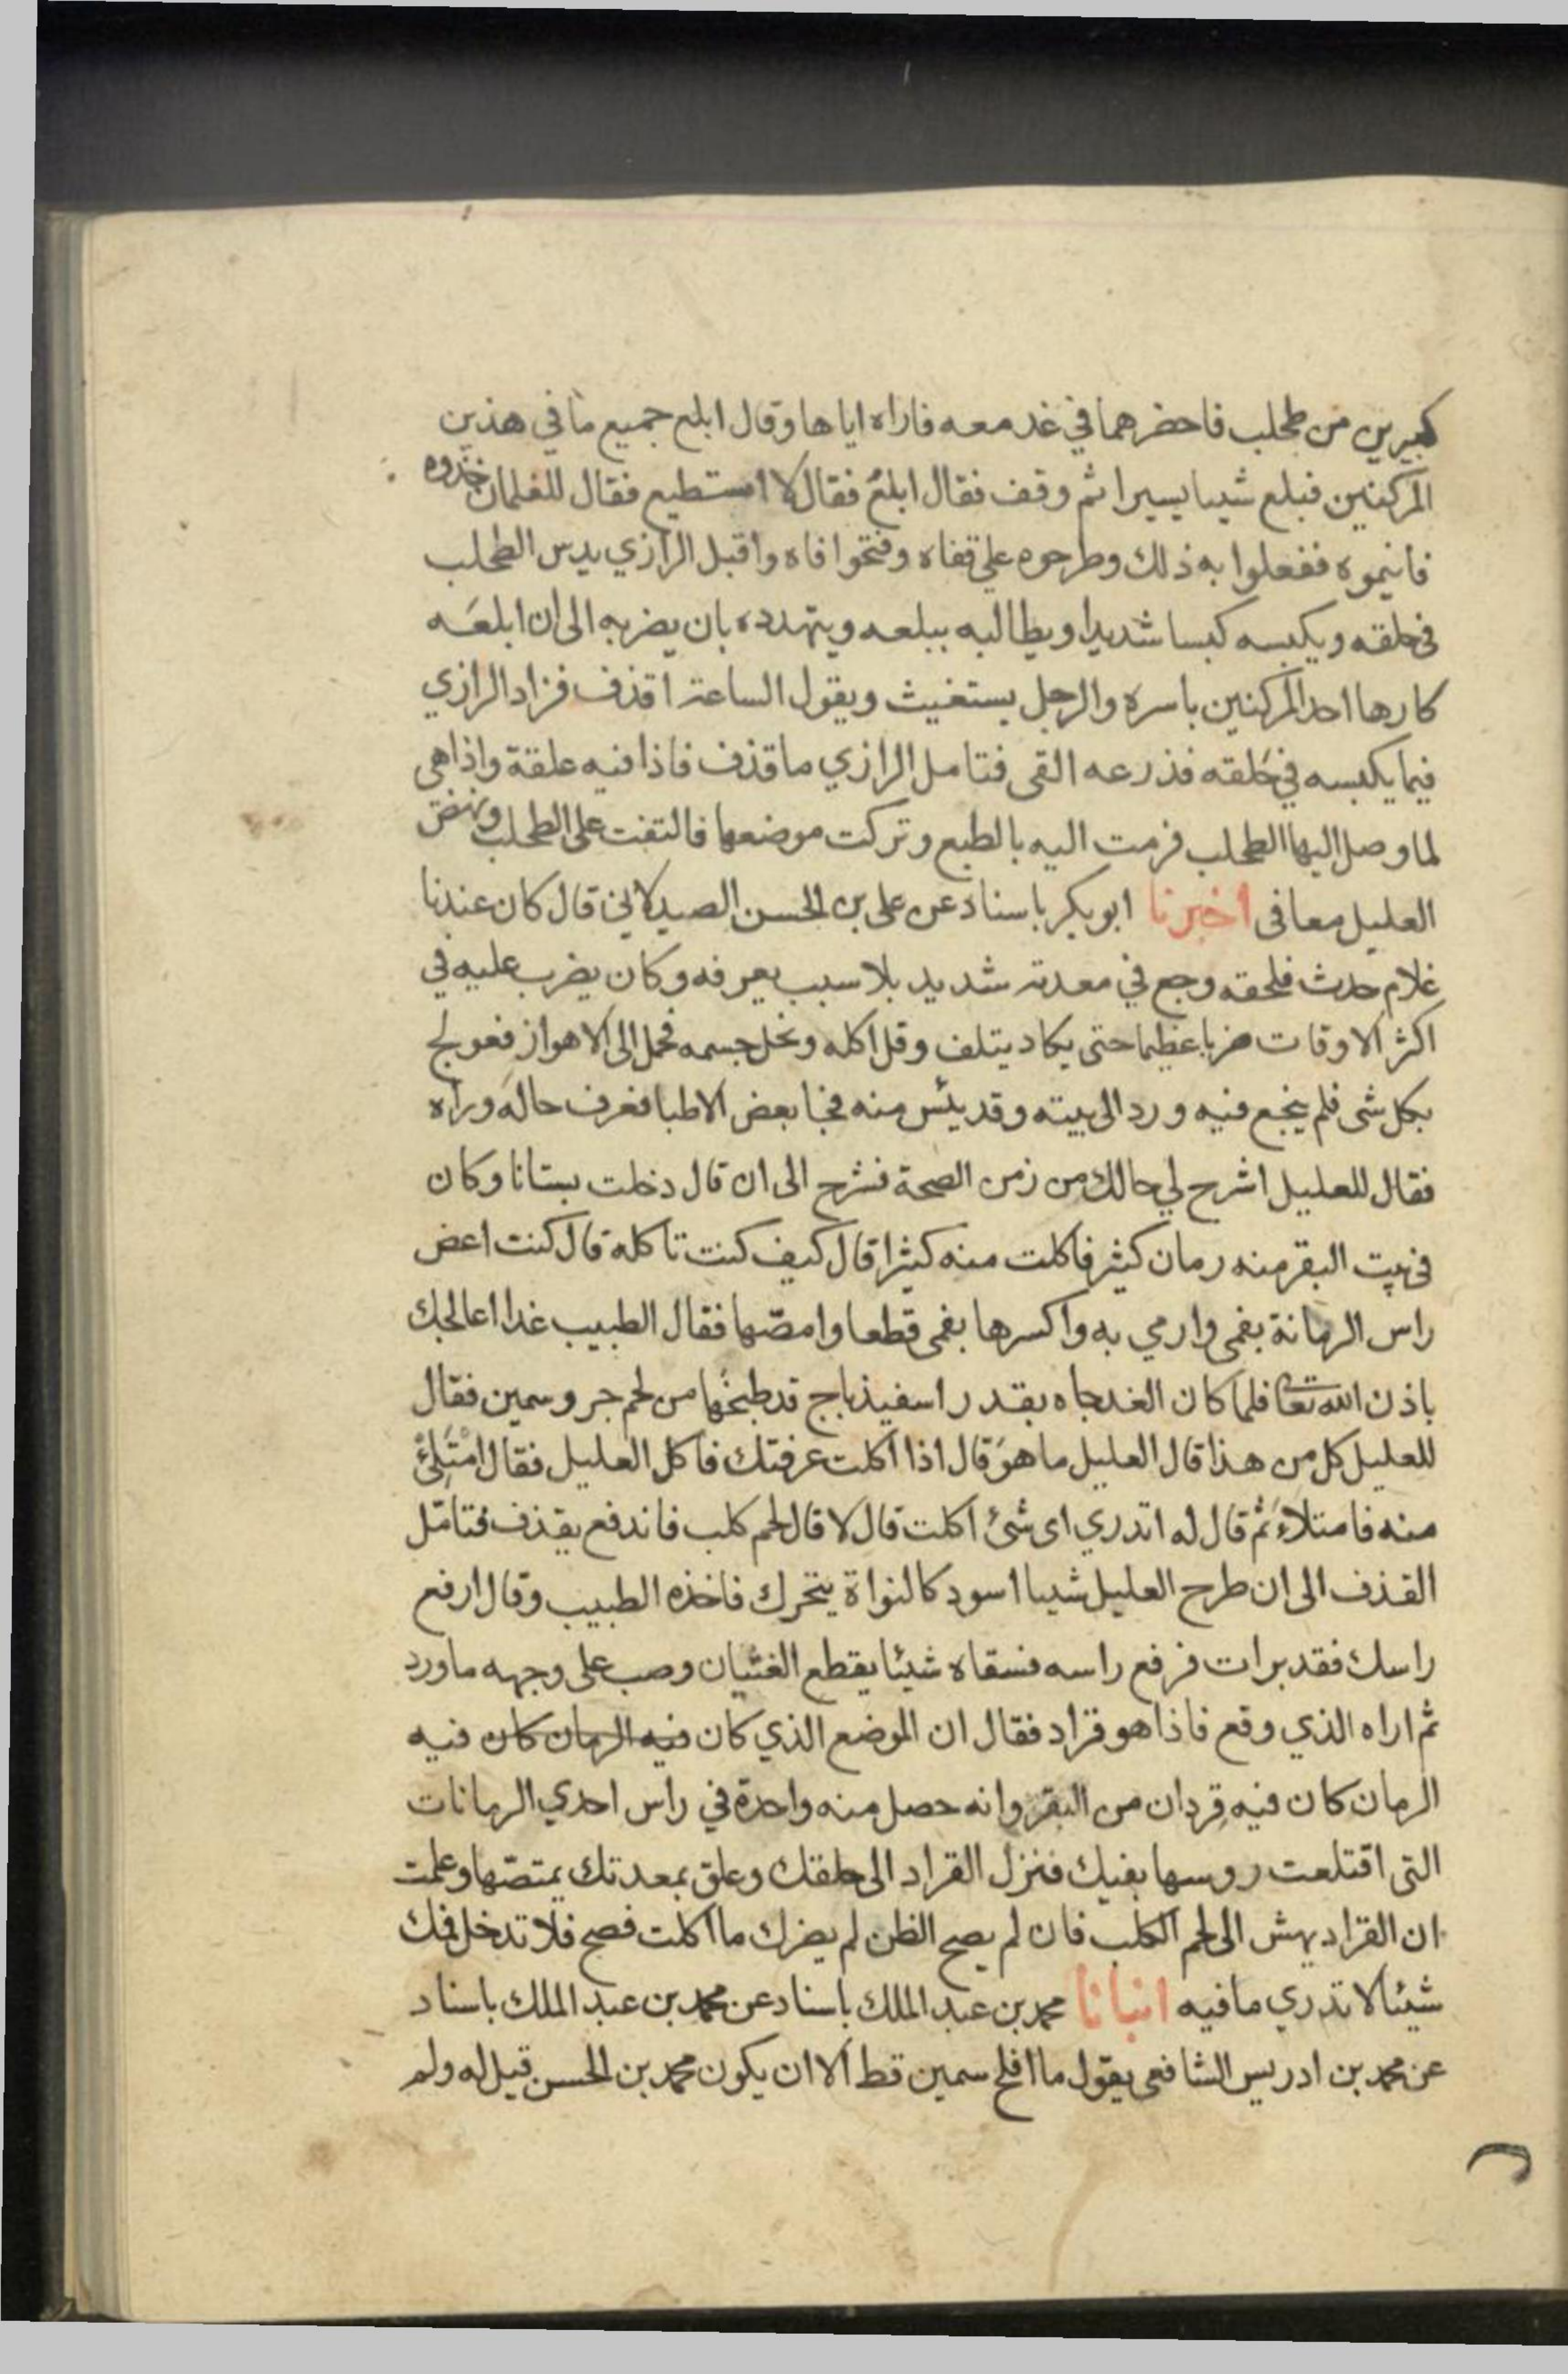 كبيرين من طحلب فاحضرهما في غد معه فاراه اياها وقال ابلع جميع ما في هذين
المركنين فبلع شيىا يسيرا ثم وقف فقال ابلعْ فقال لا استطيع فقال للغلمان خذوه
فانيموه ففعلوا به ذلك وطرحوه على قفاه وفتحوا فاه واقبل الرازي يدس الطحلب
في حلقه ويكبسه كبسا شديدا ويطالبه ببلعه ويتهدده بان يضربه الى ان ابلعَه
كارها احد المركنين باسره والرجل يستغيث ويقول الساعة اقذف فزاد الرازي
فيما يكبسه في حَلقه فذرعه القى فتامل الرازي ما قذف فاذا فيه علقة واذا هي
لما وصل اليها الطحلب فرمت اليه بالطبع وتركت موضعها فالتفت على الطحلب ونهض
العليل معافى اخبرنا ابو بكر باسناد عن على بن الحسن الصيدلاني قال كان عندنا
غلام حدث فلحقه وجع في معدته شديد بلا سبب يعرفه وكان يضرب عليه في
اكثر الاوقات ضربا عظيما حتى يكاد يتلف وقل اكله ونحل جسمه فحمل الى الاهواز فعولج
بكل شى فلم ينجع فيه ورد الى بيته وقد يئس منه فجا بعض الاطبا فعرف حاله وراه
فقال للعليل اشرح لي حالك من زمن الصحة فشرح الى ان قال دخلت بستانا وكان
في بيت البقر منه رمان كثير فاكلت منه كثيرا قال كيف كنت تاكله قال كنت اعض
راس الرمانة بفمى وارمي به واكسرها بفمى قطعا وامصّها فقال الطبيب غدا اعالجك
باذن الله تعا فلما كان الغد جاه بقدر اسفيذباج قد طبخها من لحم جرو سمين فقال
للعليل كل من هذا قال العليل ما هوَ قال اذا اكلت عرفتك فاكل العليل فقال امْتَلِئْ
منه فامتلاءَ ثم قال له اتدري اى شئ اكلت قال لا قال لحم كلب فاندفع يقذف فتامّل
القذف الى ان طرح العليل شيىا اسود كالنواة يتحرك فاخذه الطبيب وقال ارفع
راسك فقد برات فرفع راسه فسقاه شيئا يقطع الغثيان وصب على وجهه ماورد
ثم اراه الذي وقع فاذا هو قراد فقال ان الموضع الذي كان فيه الرمان كان فيه
الرمان كان فيه قِردان من البقر وانه حصل منه واحدة في راس احدي الرمانات
التى اقتلعت روسها بفيك فنزل القراد الى حلقك وعلق بمعدتك يمتصّها وعلمت
ان القراد يهش الى لحم الكلب فان لم يصح الظن لم يضرك ما اكلت فصح فلا تدخل فمك
شيئا لا تدري ما فيه انبانا محمد بن عبد الملك باسناد عن محمد بن عبد الملك باسناد
عن محمد بن ادريس الشافعى يقول ما افلح سمين قط الا ان يكون محمد بن الحسن قيل له ولم